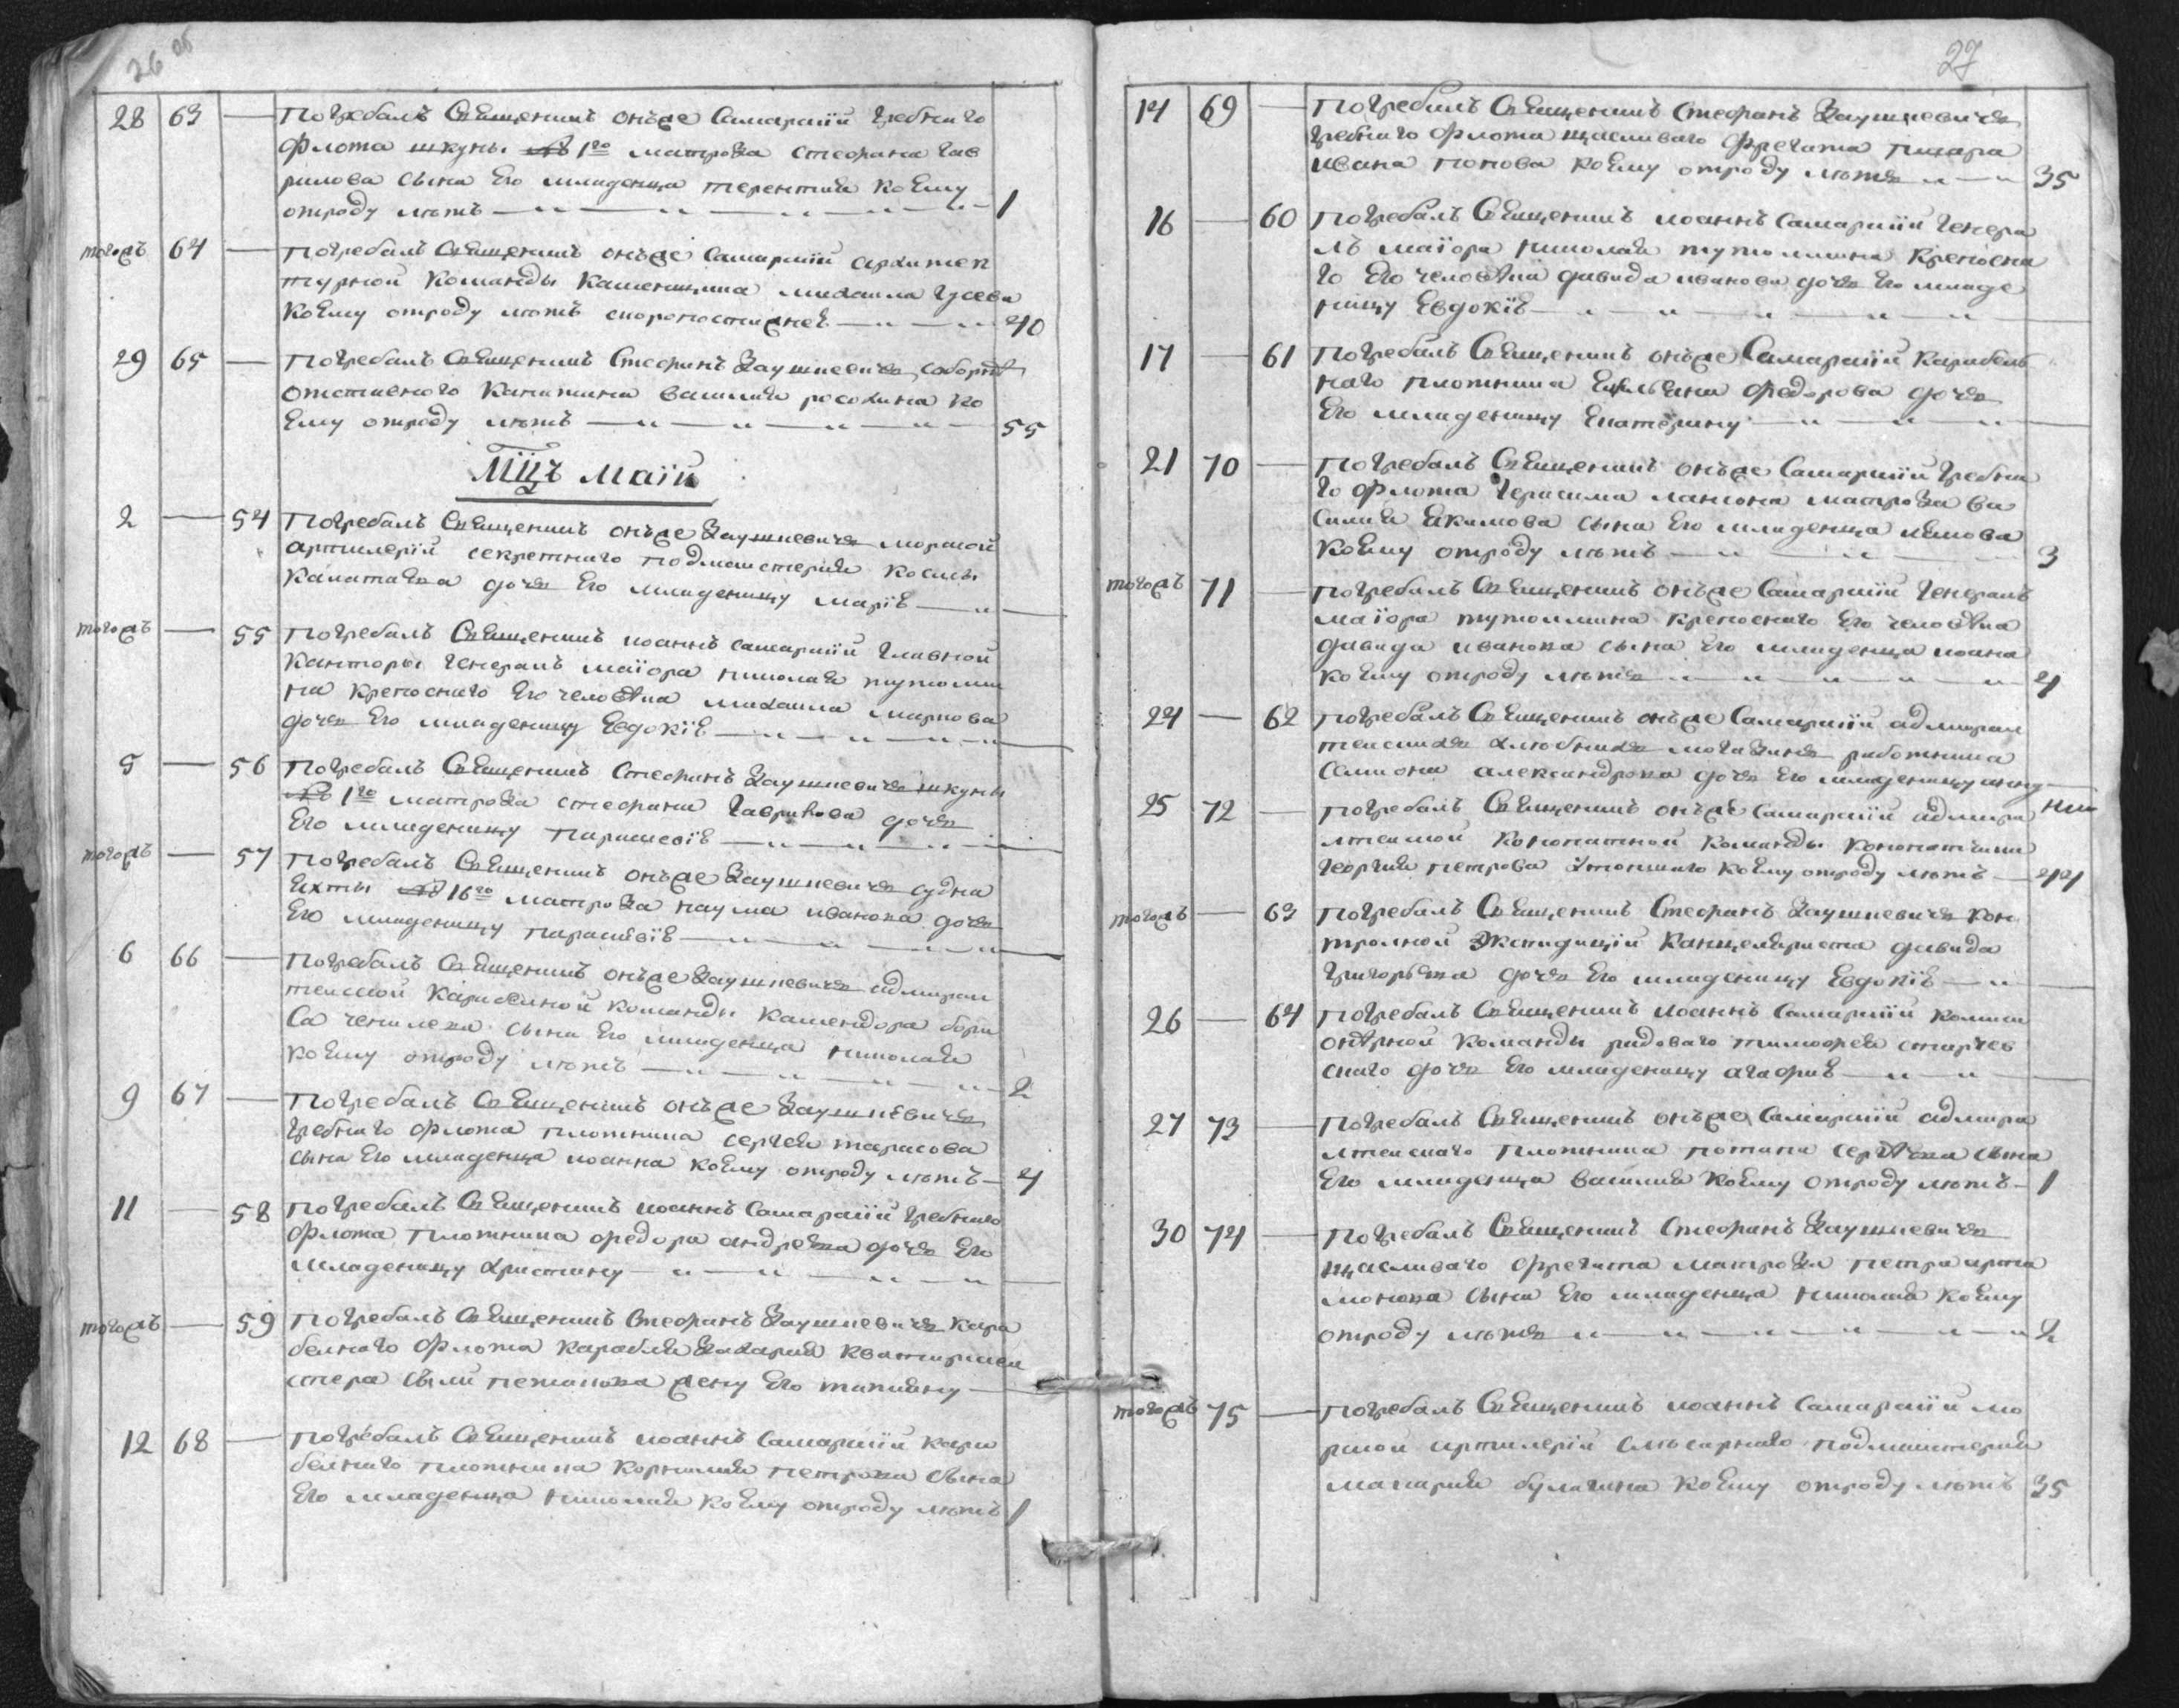 26 об
28 63 — Погребалъ Священникъ онъже Самарскій гребнаго
Флота шкуны № 1го матроза стефана гав
рилова сына Его младенца терентия коему
отроду лѣтъ — 1
тогожъ 64 — Погребалъ Священникъ онъже Самарскій архитек
турной команды каменщика михаила гусева
коему отроду лѣтъ скоропостижнѣ — 40
29 65 — Погребалъ Священникъ Стефанъ Заушкевичъ
отставного капитана василия росохина ко
ему отроду лѣтъ — 55
Мцъ Маїи
2 — 54 Погребалъ Священникъ онъже Заушкевичъ морской
артилеріи секретнаго подмаистерия космы
дочь Его младеницу маріѣ —
тогожъ — 55 Погребалъ Священникъ иоаннъ самарскій главной
канторы генералъ маїора николая тутолми
на крепоснаго Его человѣка михаила маркова
дочь Его младеницу Евдокіѣ —
5 — 56 Погребалъ Священникъ Стефанъ Заушкевичъ шкуны
№ 1го матроза стефана гаврилова дочь
Его младеницу Параскевіѣ —
тогожъ — 57 Погребалъ Священникъ онъже Заушкевичъ судна
яхты № 16го матроза наума иванова дочь
Его младеницу параскѣвіѣ —
6 66 — Погребалъ Священникъ онъже Заушкевичъ адмирал
тенской карабелной команды камендора бори
са сына Его младенца николая
коему отроду лѣтъ — 2
9 67 — Погребалъ Священникъ онъже Заушкевичъ
гребнаго Флота плотника сергея тарасова
сына Его младенца иоанна коему отроду лѣтъ — 4
11 — 58 Погребалъ Священникъ иоаннъ Самарскій гребнаго
Флота Плотника федора андреева дочь Его
младеницу христину —
тогожъ — 59 Погребалъ Священникъ Стефанъ Заушкевичъ кара
белнаго Флота карабля Захария квартирмей
стера жену Его татияну —
12 68 — Погребалъ Священникъ иоаннъ Самарскій кара
белнаго плотника корнилия петрова сына
Его младенца николая коему отроду лѣтъ 1
27
14 69 — Погребалъ Священникъ Стефанъ Заушкевичъ
гребнаго Флота щасливаго Фрегата писара
ивана попова коему отроду лѣтъ — 35
16 — 60 Погребалъ Священникъ иоаннъ Самарскій генера
лъ маїора николая тутолмина крепосна
го Его человѣка давида иванова дочь Его младе
ницу Евдокіѣ —
17 — 61 Погребалъ Священникъ онъже Самарскій карабелъ
наго плотника Емельяна Федорова дочь
Его младеницу Екатерину —
21 70 — Погребалъ Священникъ онъже Самарскій гребна
го Флота герасима лансона матроза ва
силия Якимова сына Его младенца иякова
коему отроду лѣтъ — 3
тогожъ 71 — Погребалъ Священникъ онъже Самарскій генералъ
маїора тутолмина крепоснаго Его человѣка
давида иванова сына Его младенца иоана
коему отроду лѣтъ — 4
24 — 62 Погребалъ Священникъ онъже Самарскій адмирал
тенскихъ хлѣбныхъ магазинъ работника
Семиона александрова дочь Его младеницу анну —
25 72 — Погребалъ Священникъ онъже Самарскій адмира
лтенской конопатной команды конопатчика
георгия петрова утопшаго коему отроду лѣтъ — 44
тогожъ — 63 Погребалъ Священникъ Стефанъ Заушкевичъ кон
тролной Экспидиціи канцеляриста давида
григорьева дочь Его младеницу Евдокіѣ —
26 — 64 Погребалъ Священникъ иоаннъ Самарскій
команды рядоваго тимофея
скаго дочь Его младеницу агафиѣ —
27 73 — Погребалъ Священникъ онъже Самарскій адмира
лтенскаго плотника потапа сергѣева сына
Его младенца василия коему отроду лѣтъ — 1
30 74 — Погребалъ Священникъ Стефанъ Заушкевичъ
щасливаго Фрегата матроза петра арта
монова сына Его младенца николая коему
отроду лѣтъ — ½
тогожъ 75 — Погребалъ Священникъ иоаннъ Самарскій мо
рской артилеріи слѣсарнаго подмаистерия
макария булагина коему отроду лѣтъ 35